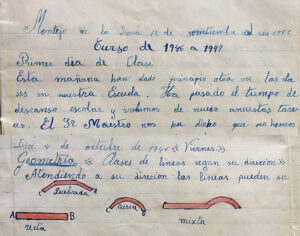 Montejo de la Sierra 12 de semtiembre del año 1946
Curso de 1946 a 1947
Primer dia de Clase
Esta mañana han dado principio otra vez las cla
ses en nuestra Escuela. Ha pasado el tiempo de
descanso escolar y volvemos de nuevo a nuestras tareas
as. El Sr Maestro nos ha dicho que hemos
Dia de octubre de 1946 «Viernes»
Geometria « Clases de lineas segun su direcion»
Atendiendo a su direcion las lineas pueden ser
Quebrada
A B
recta
curva
mixta